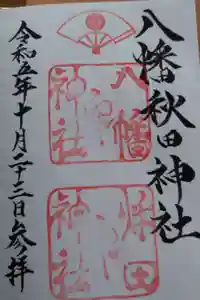 八幡秋田神社
八幡
神社
秋田
神社
令和五年十月二十三日参拝